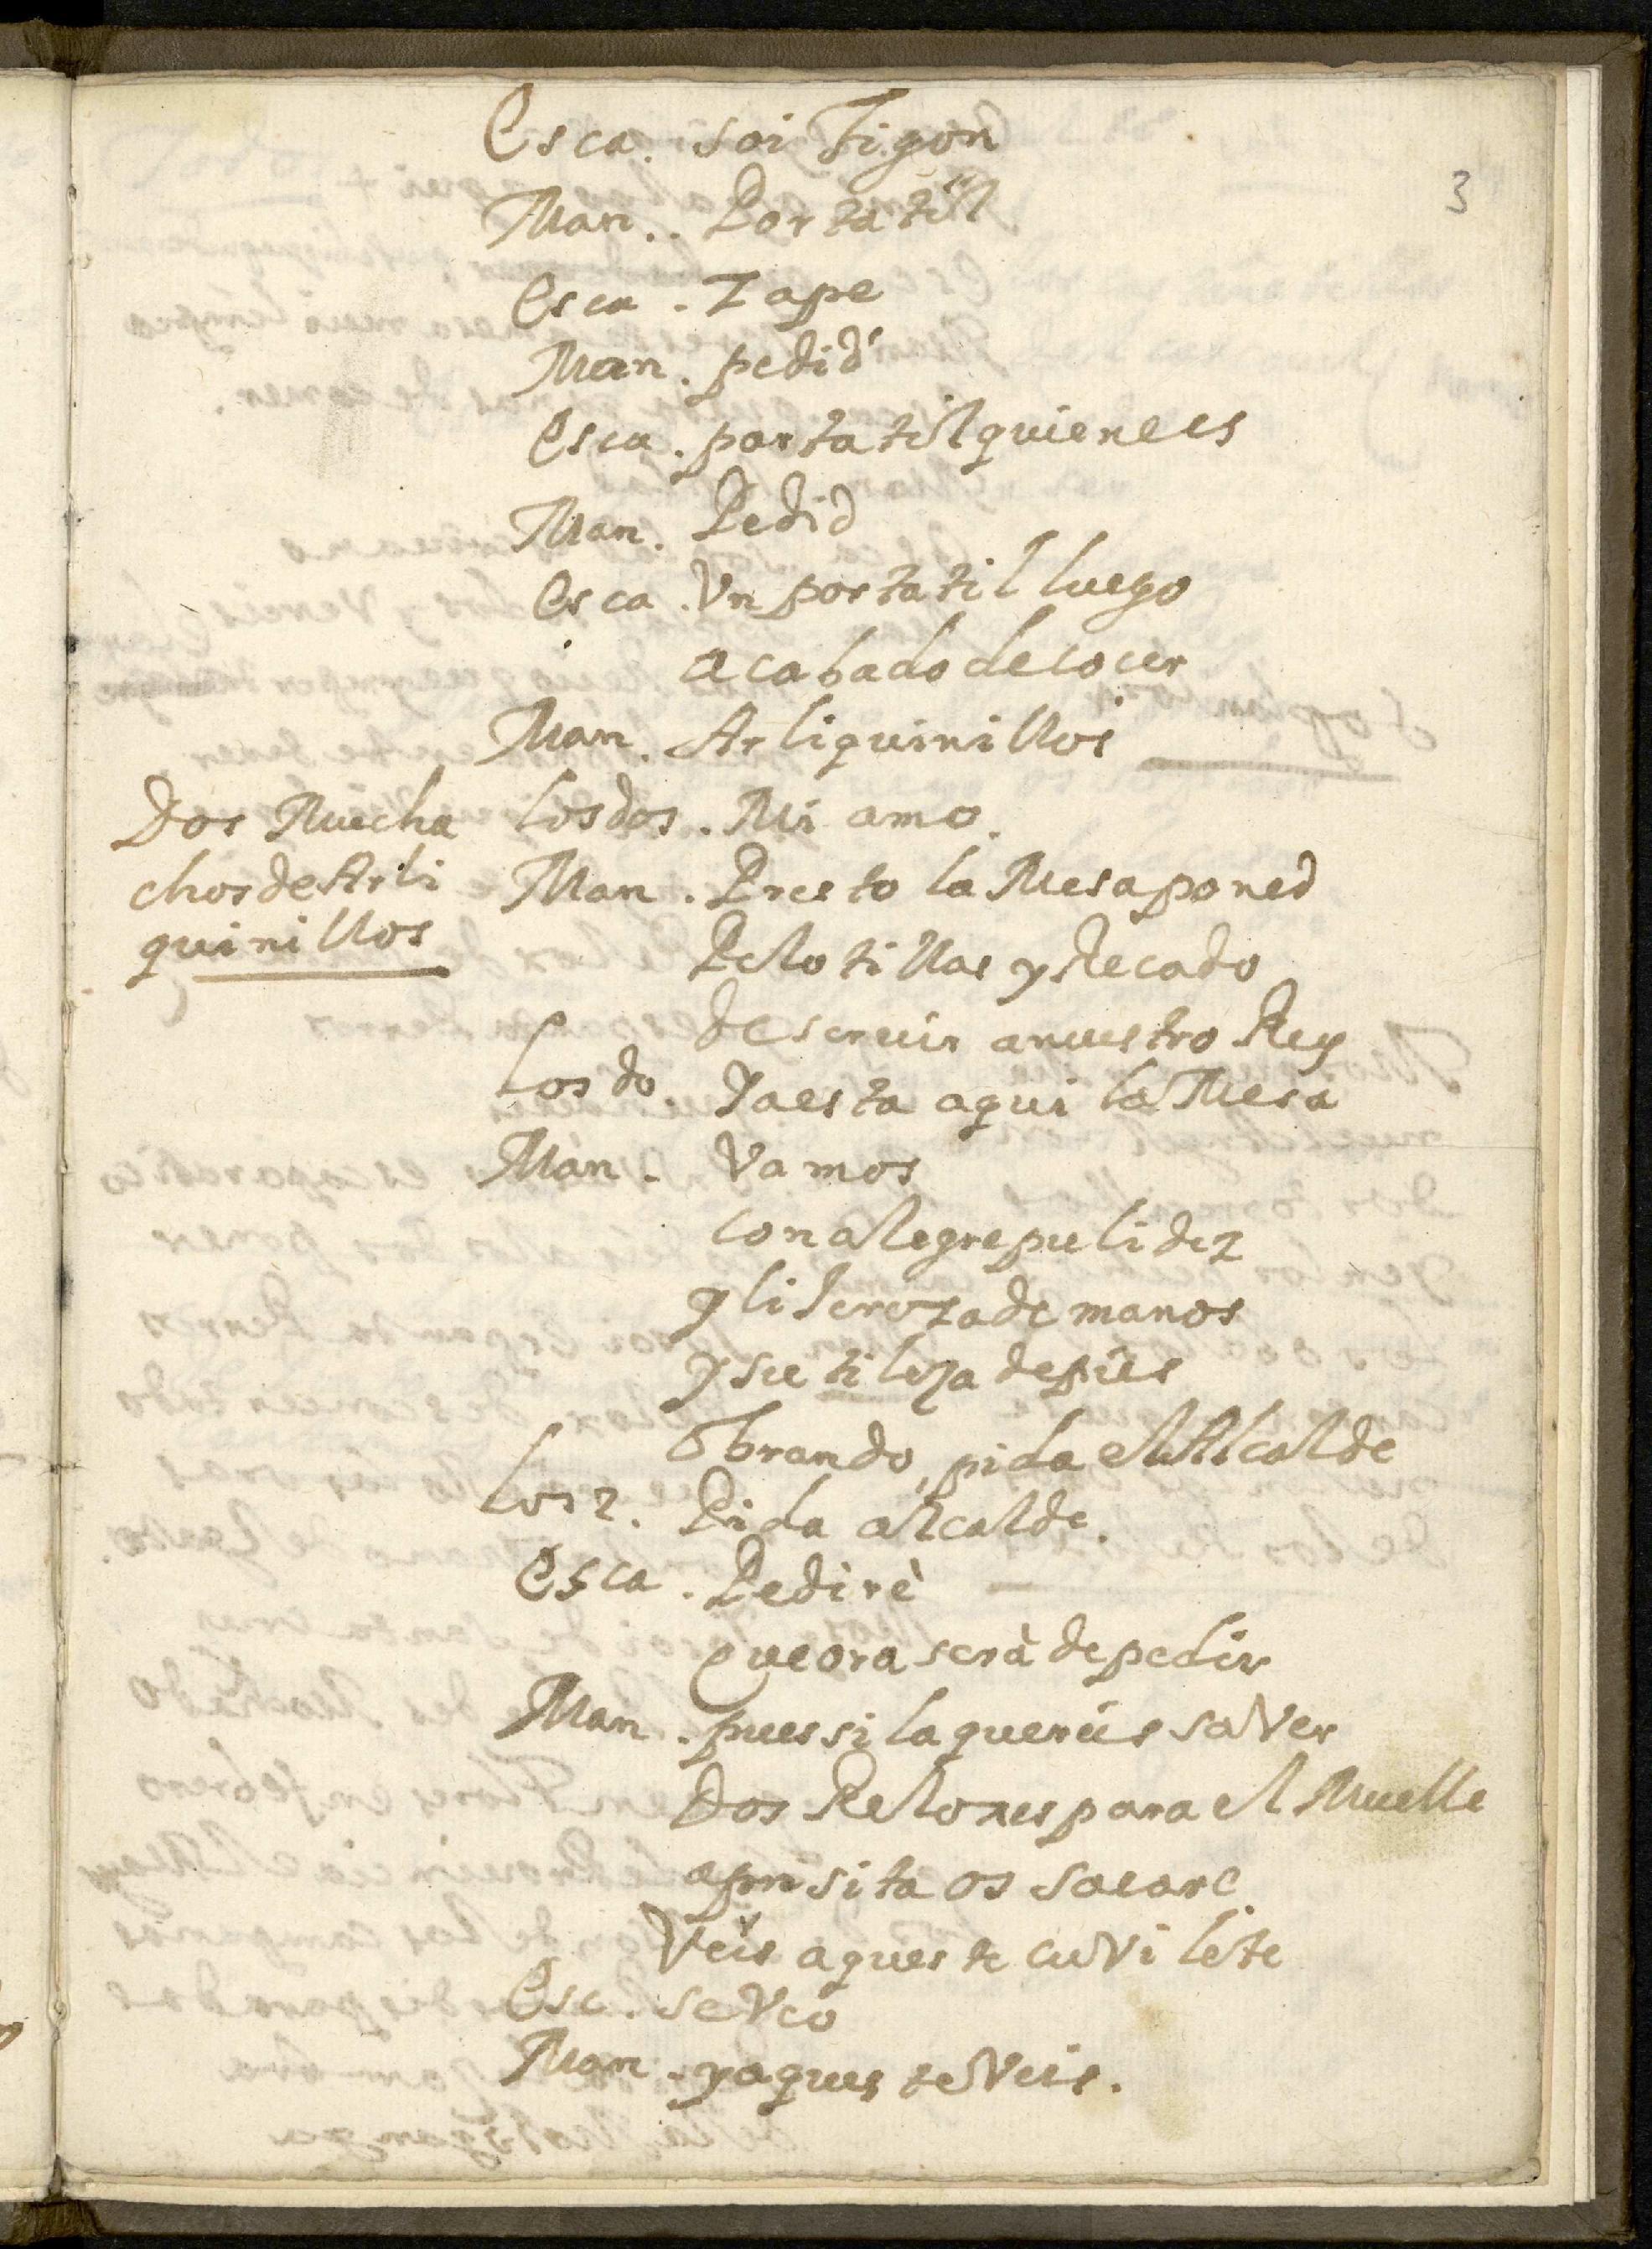 3
Esca. soi Figon
Man.. Portatil
Esca. Zape
Man. pedid
Esca. portatil quienees
Man. Pedid
Esca. Vn portatil luego
acabado de cocer
Man. Arliquinillos
Dos Mucha
chos de Arli
quinillos
los dos. Mi amo.
Man. Presto la Mesa poned
Pelotillas y Recado
de seruir a nuestro Rey
Los do. Ya esta aqui la Mesa
Man. Vamos
con alegre pulidez
y lijereza de manos
y sutileza de pies
Obrando, pida el Alcalde
Los 2. Pida alcalde.
Esca. Pedirè
que ora serà de pedir
Man. pues si la quereis saver
Dos Reloxes para el Muelle
aprisita os sacare
Veis aqueste cuvilete
Esc. se veo
Man. y aqueste Veis.